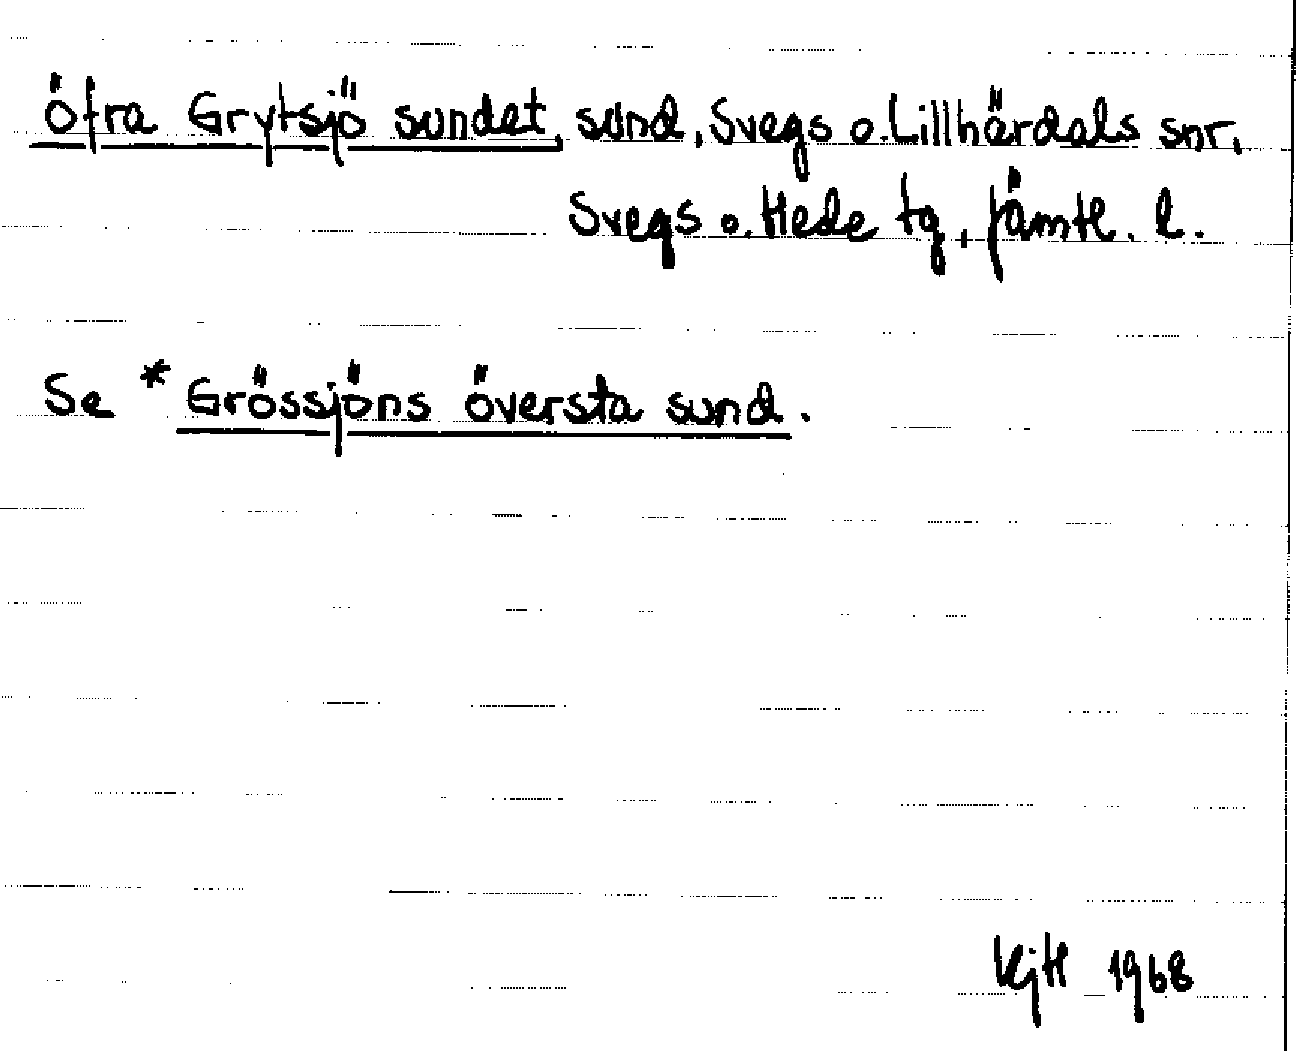 Öfra Grytsjö sundet, sund, Svegs o. Lillhärdals snr,
Svegs o. Hede tg, Jämtl. l.
Se * Grössjöns översta sund.
KjH 1968